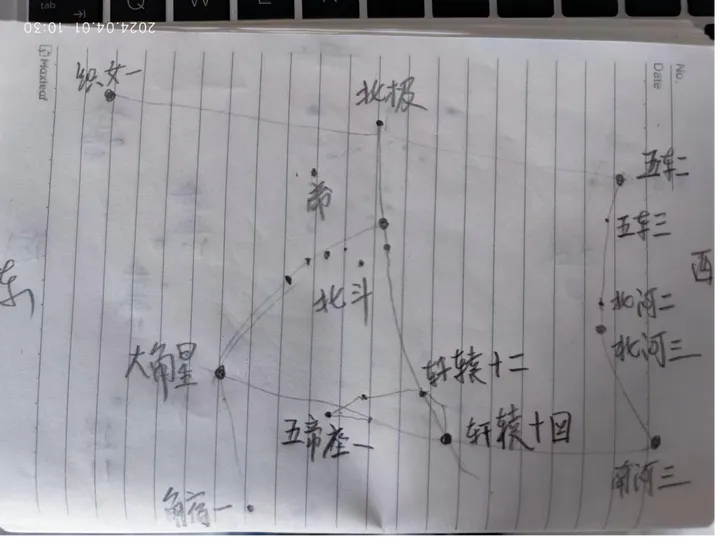 tab
Q
W
E
2024.04.01 10:30
Maxleaf
No.
Date
织女一
北极
五车二
帝
五车三
东
西
北斗
北河二
北河三
大角星
轩辕十二
五帝座一
轩辕十四
南河三
角宿一